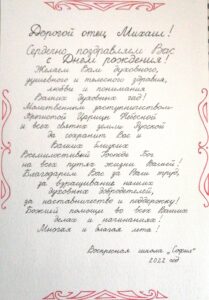 Дорогой отец Михаил!
Сердечно поздравляем Вас
с Днём рождения!
Желаем Вам духовного,
душевного и телесного здравия,
любви и понимания
Ваших духовных чад!
Молитвенным заступничеством
Пресвятой Царицы Небесной
и всех святых земли Русской
да сохранит Вас и
Ваших близких
Всемилостивый Господь Бог
на всех путях жизни Вашей!
Благодарим Вас за Ваши труды,
за взращивание наших
духовных добродетелей,
за наставничество и поддержку!
Божией помощи во всех Ваших
делах и начинаниях!
Многая и благая лета!
Воскресная школа "София"
2022 год